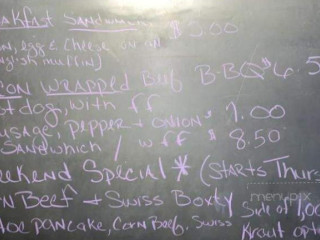 akfast Sandwich $3.00
on, egg & cheese on an
glish muffin)
on Wrapped Beef B-BQ $6.5
t dog, with ff
usage, pepper & onion $7.00
sandwhich / w ff $8.50
eekend Special * (Starts Thurs
rn Beef & Swiss Boxty
toe pancake, Corn Beef, Swiss
Side of 1,00
Kraut opti
menupix